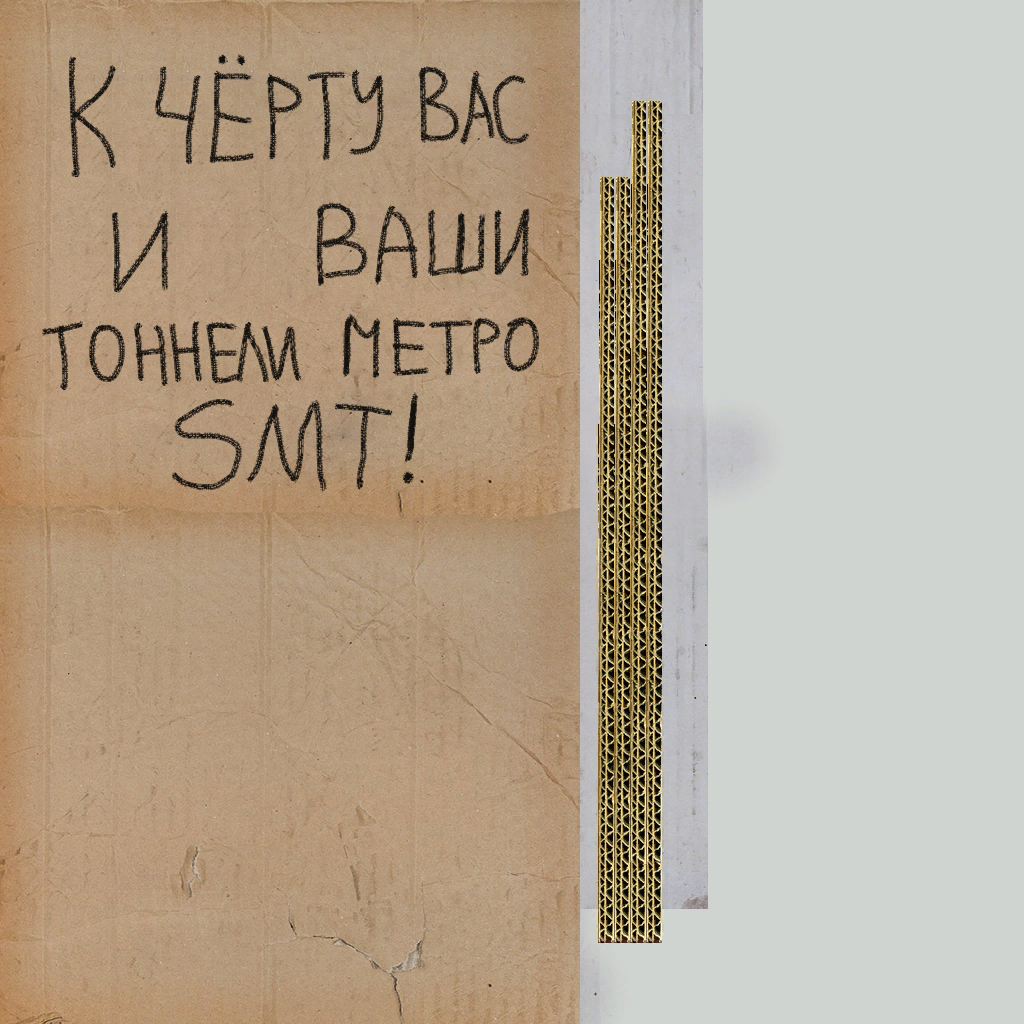 К ЧЁРТУ ВАС
И ВАШИ
ТОННЕЛИ МЕТРО
SMT!